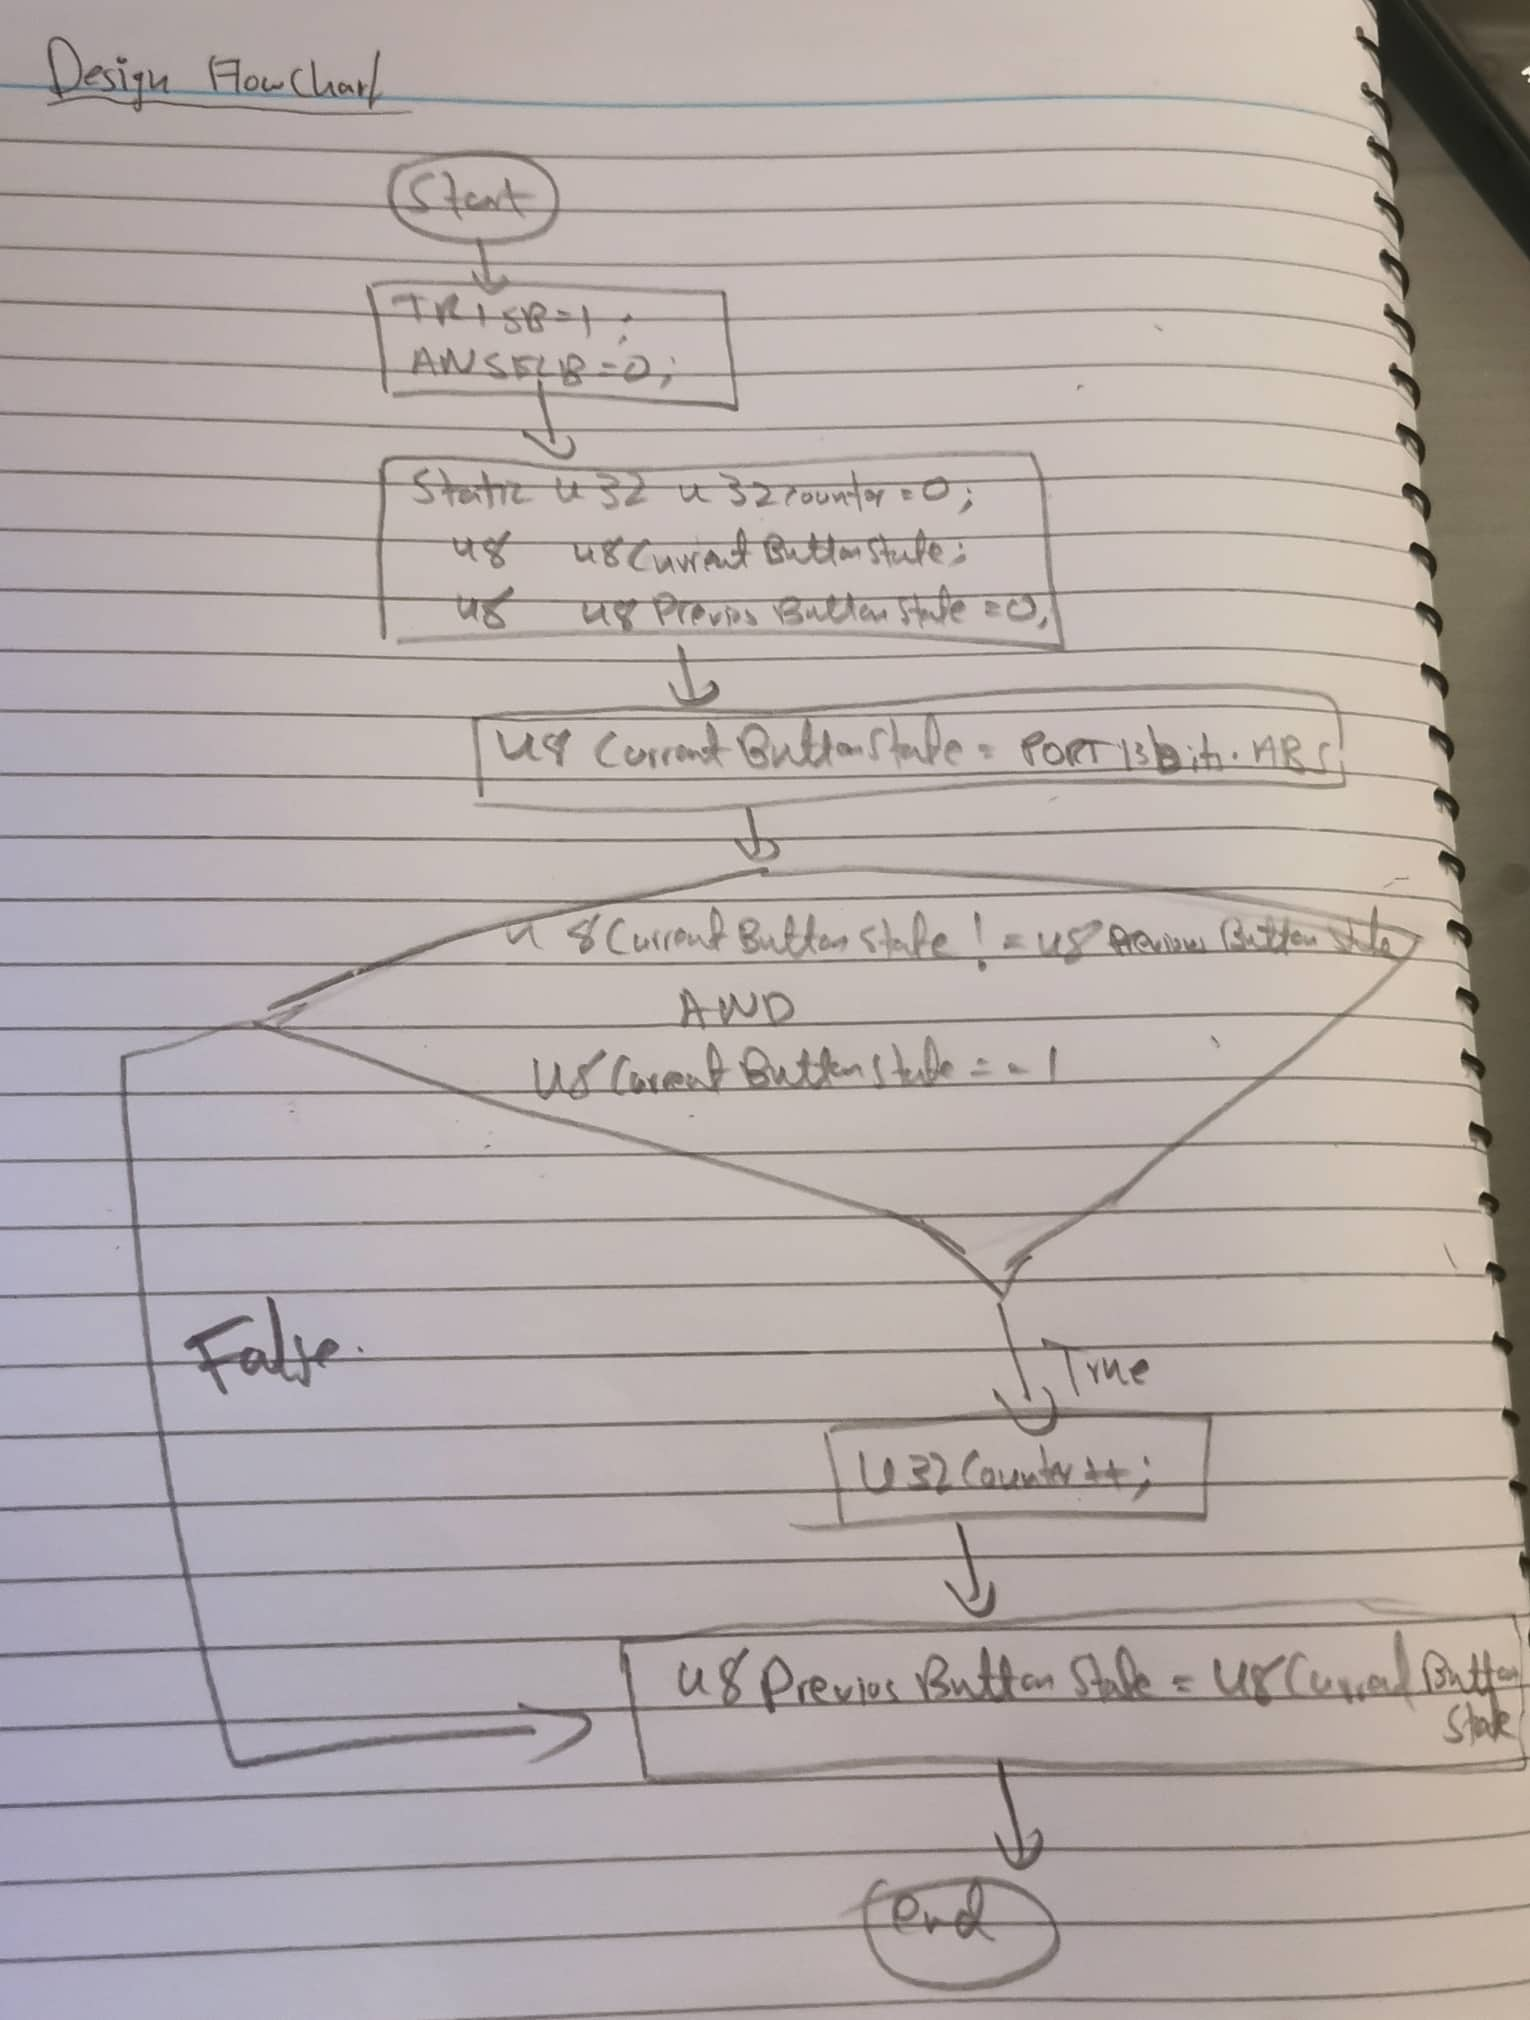 Design Flow Chart
Start
TRISB=1;
ANSELB=0;
Static u32 u32counter=0;
u8 u8CurrentButtonState;
u8 u8PreviosButtonState=0;
U8CurrentButtonState=
u8CurrentButtonState!=u8PreviousButtonState
AND
U8CurrentButtonState==1
False.
True
U32Counter++;
u8PreviosButtonState=U8CurrentButton
State
end